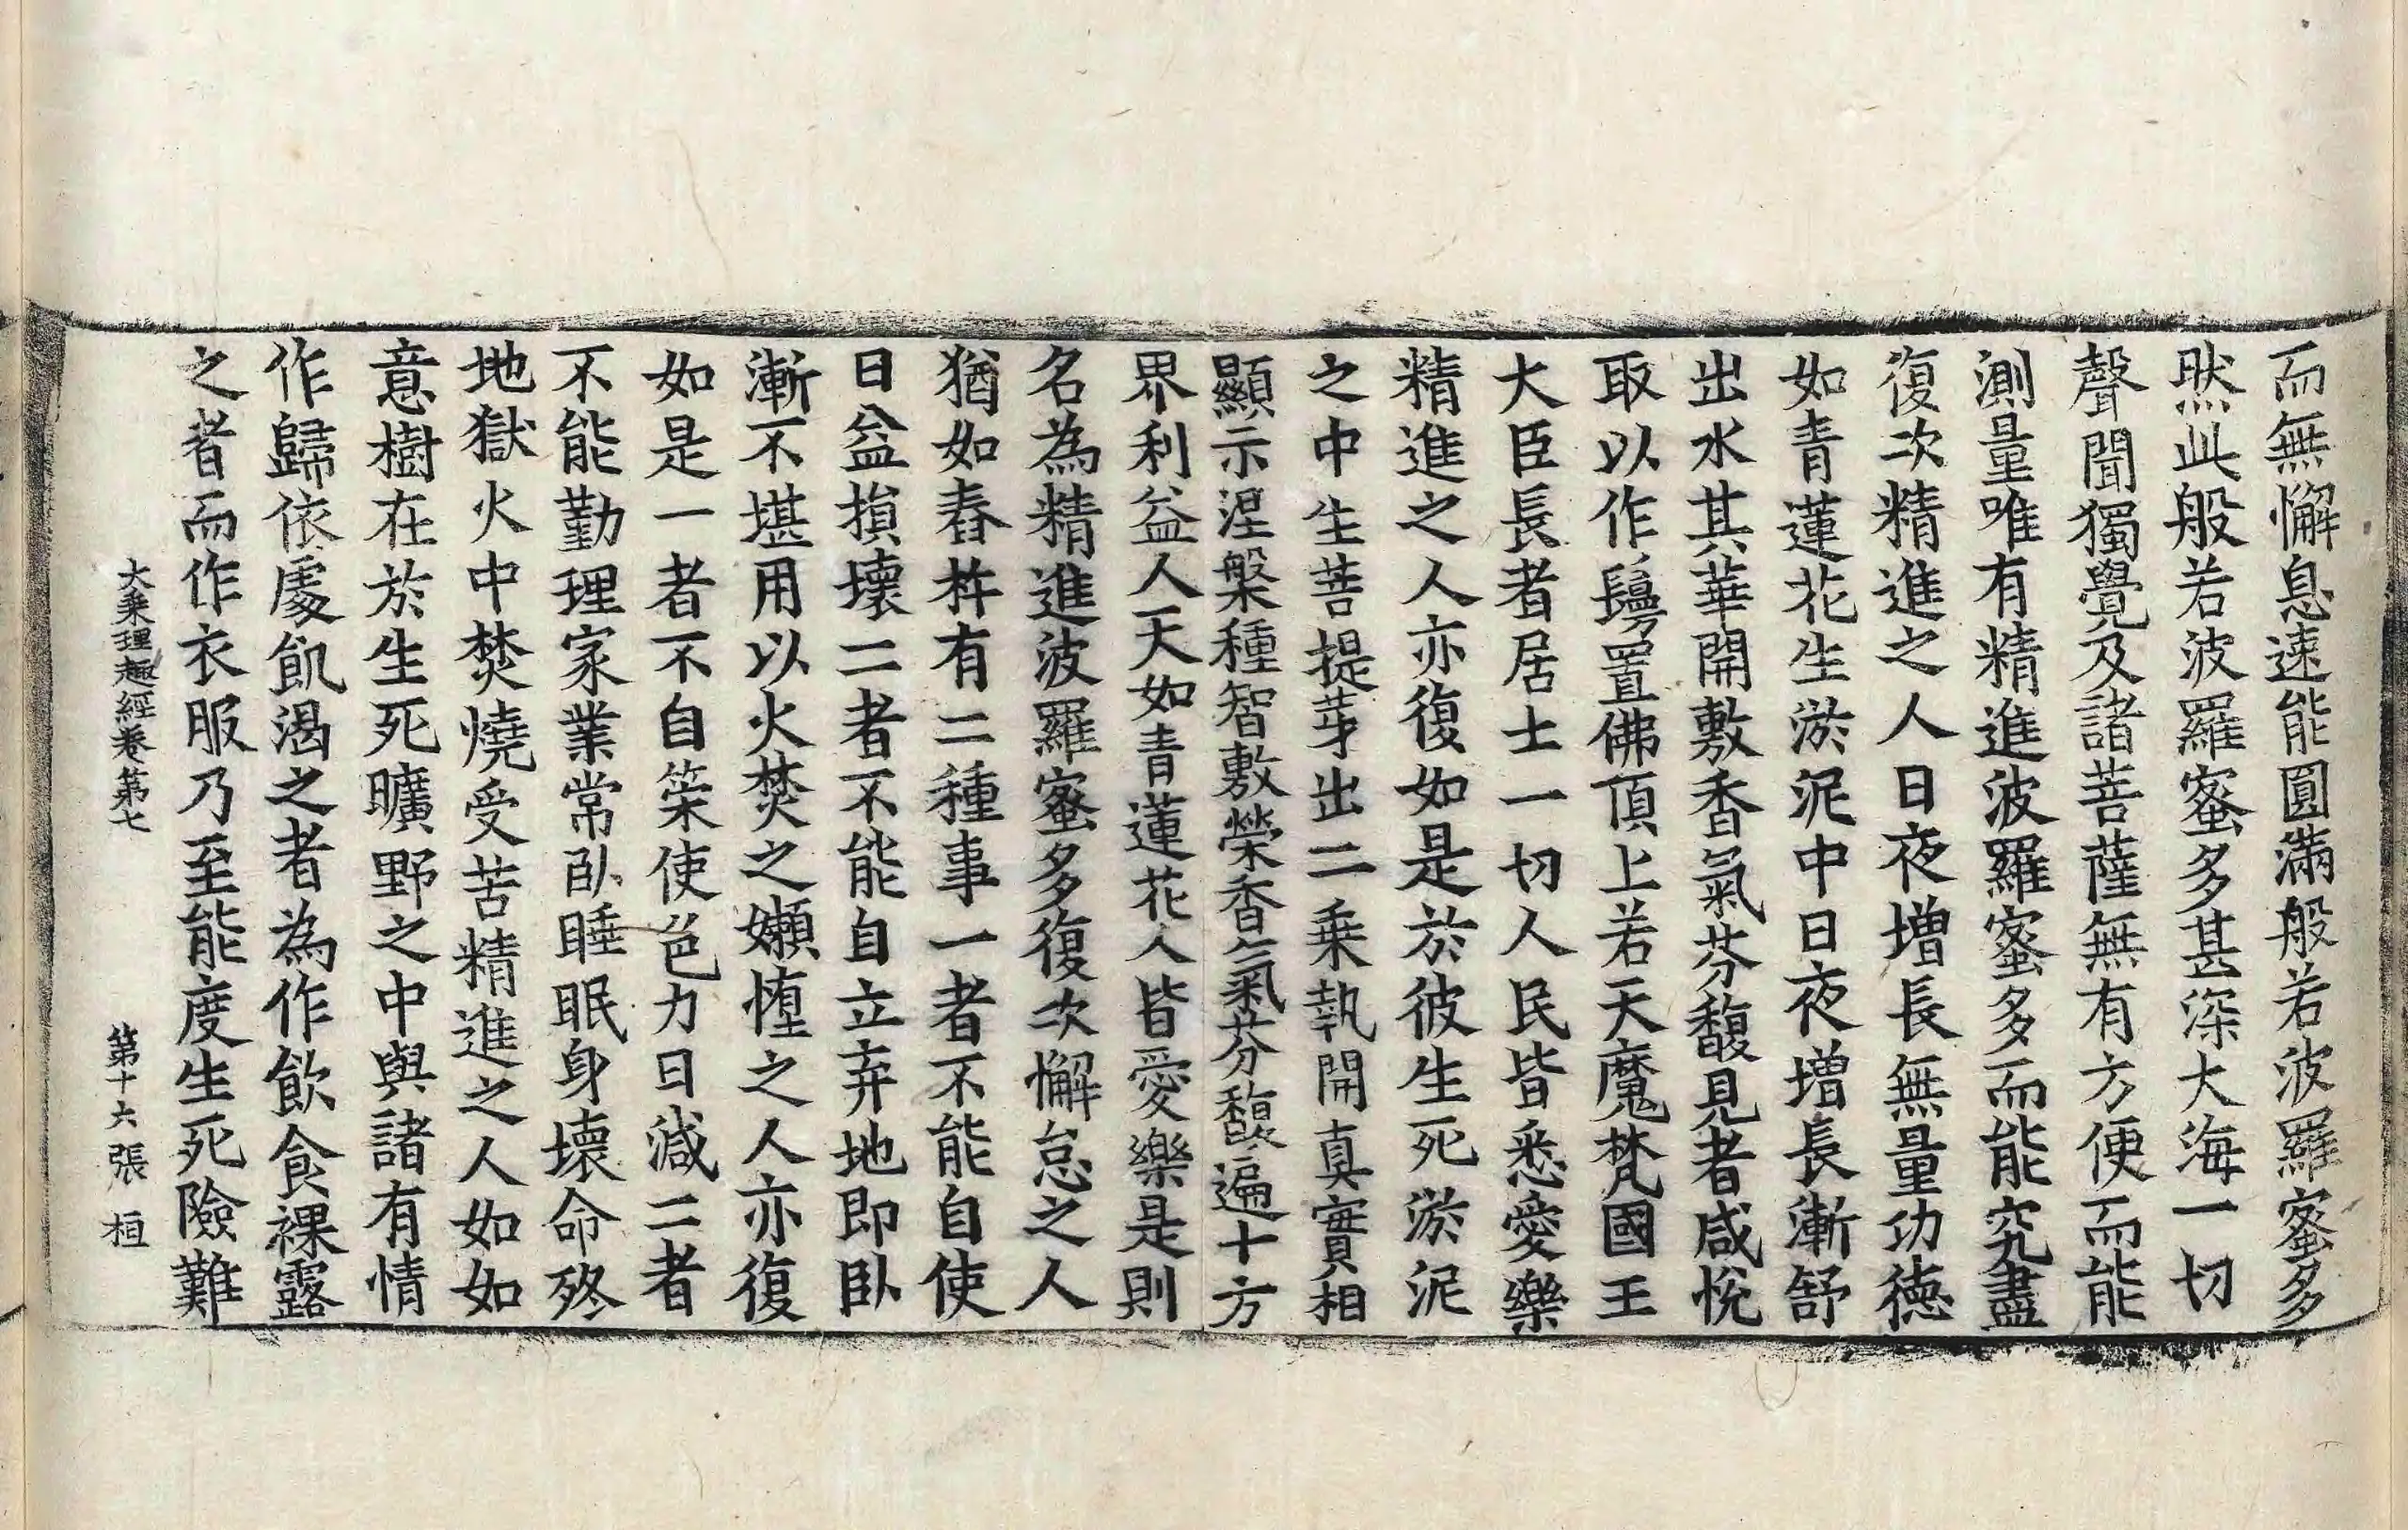 而無懈息速能圓滿般若波羅蜜多
然此般若波羅蜜多甚深大海一切
聲聞獨覺及諸菩薩無有方便而能
測量唯有精進波羅蜜多而能究盡
復次精進之人日夜增長無量功德
如青蓮花生淤泥中日夜增長漸舒
出水其華開敷香氣芬馥見者咸悅
取以作鬘置佛頂上若天魔梵國王
大臣長者居士一切人民皆悉愛樂
精進之人亦復如是於彼生死淤泥
之中生菩提芽出二乘執開真實相
顯示涅槃種智敷榮香氣芬馥遍十方
界利益人天如青蓮花人皆愛樂是則
名為精進波羅蜜多復次懈怠之人
猶如舂杵有二種事一者不能自使
日益損壞二者不能自立弃地即臥
漸不堪用以火焚之嬾惰之人亦復
如是一者不自策使色力日減二者
不能勤理家業常臥睡眠身壞命終
地獄火中焚燒受苦精進之人如如
意樹在於生死曠野之中與諸有情
作歸依處飢渴之者為作飲食裸露
之者而作衣服乃至能度生死險難
大乘理趣經卷第七 第十六張 桓